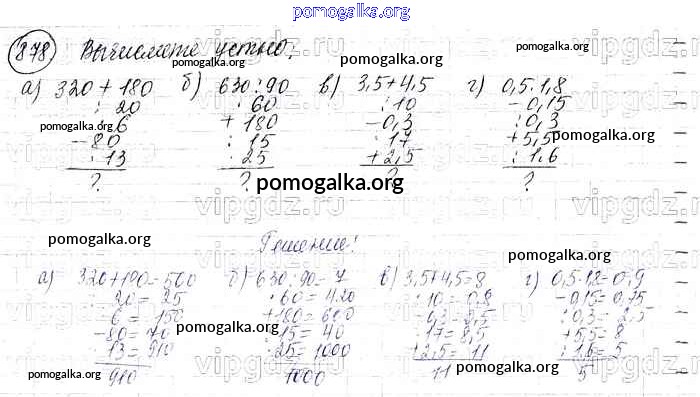 pomogalka.org
878 Вычислите устно:
pomogalka.org
а) 320 + 180 б) 630 : 90 в) 3,5 + 4,5 г) 0,5 · 1,8
: 20 · 60 : 10 - 0,15
pomogalka.org · 6 + 180 - 0,3 : 0,3
- 80 : 15 · 17 + 5,5 pomogalka.org
· 13 · 25 + 2,5 : 1,6
? ? ? ?
pomogalka.org
vipgdz.ru
pomogalka.org Решение!
pomogalka.org
а) 320 + 180 = 500 б) 630 : 90 = 7 в) 3,5 + 4,5 = 8 г) 0,5 · 1,8 = 0,9
: 20 = 25 · 60 = 420 : 10 = 0,8 - 0,15 = 0,75
· 6 = 150 + 180 = 600 - 0,3 = 0,5 : 0,3 = 2,5
pomogalka.org
- 80 = 70 : 15 = 40 · 17 = 8,5 + 5,5 = 8
pomogalka.org
· 13 = 910 · 25 = 1000 + 2,5 = 11 : 1,6 = 5
pomogalka.org
910 1000 11 5
pomogalka.org